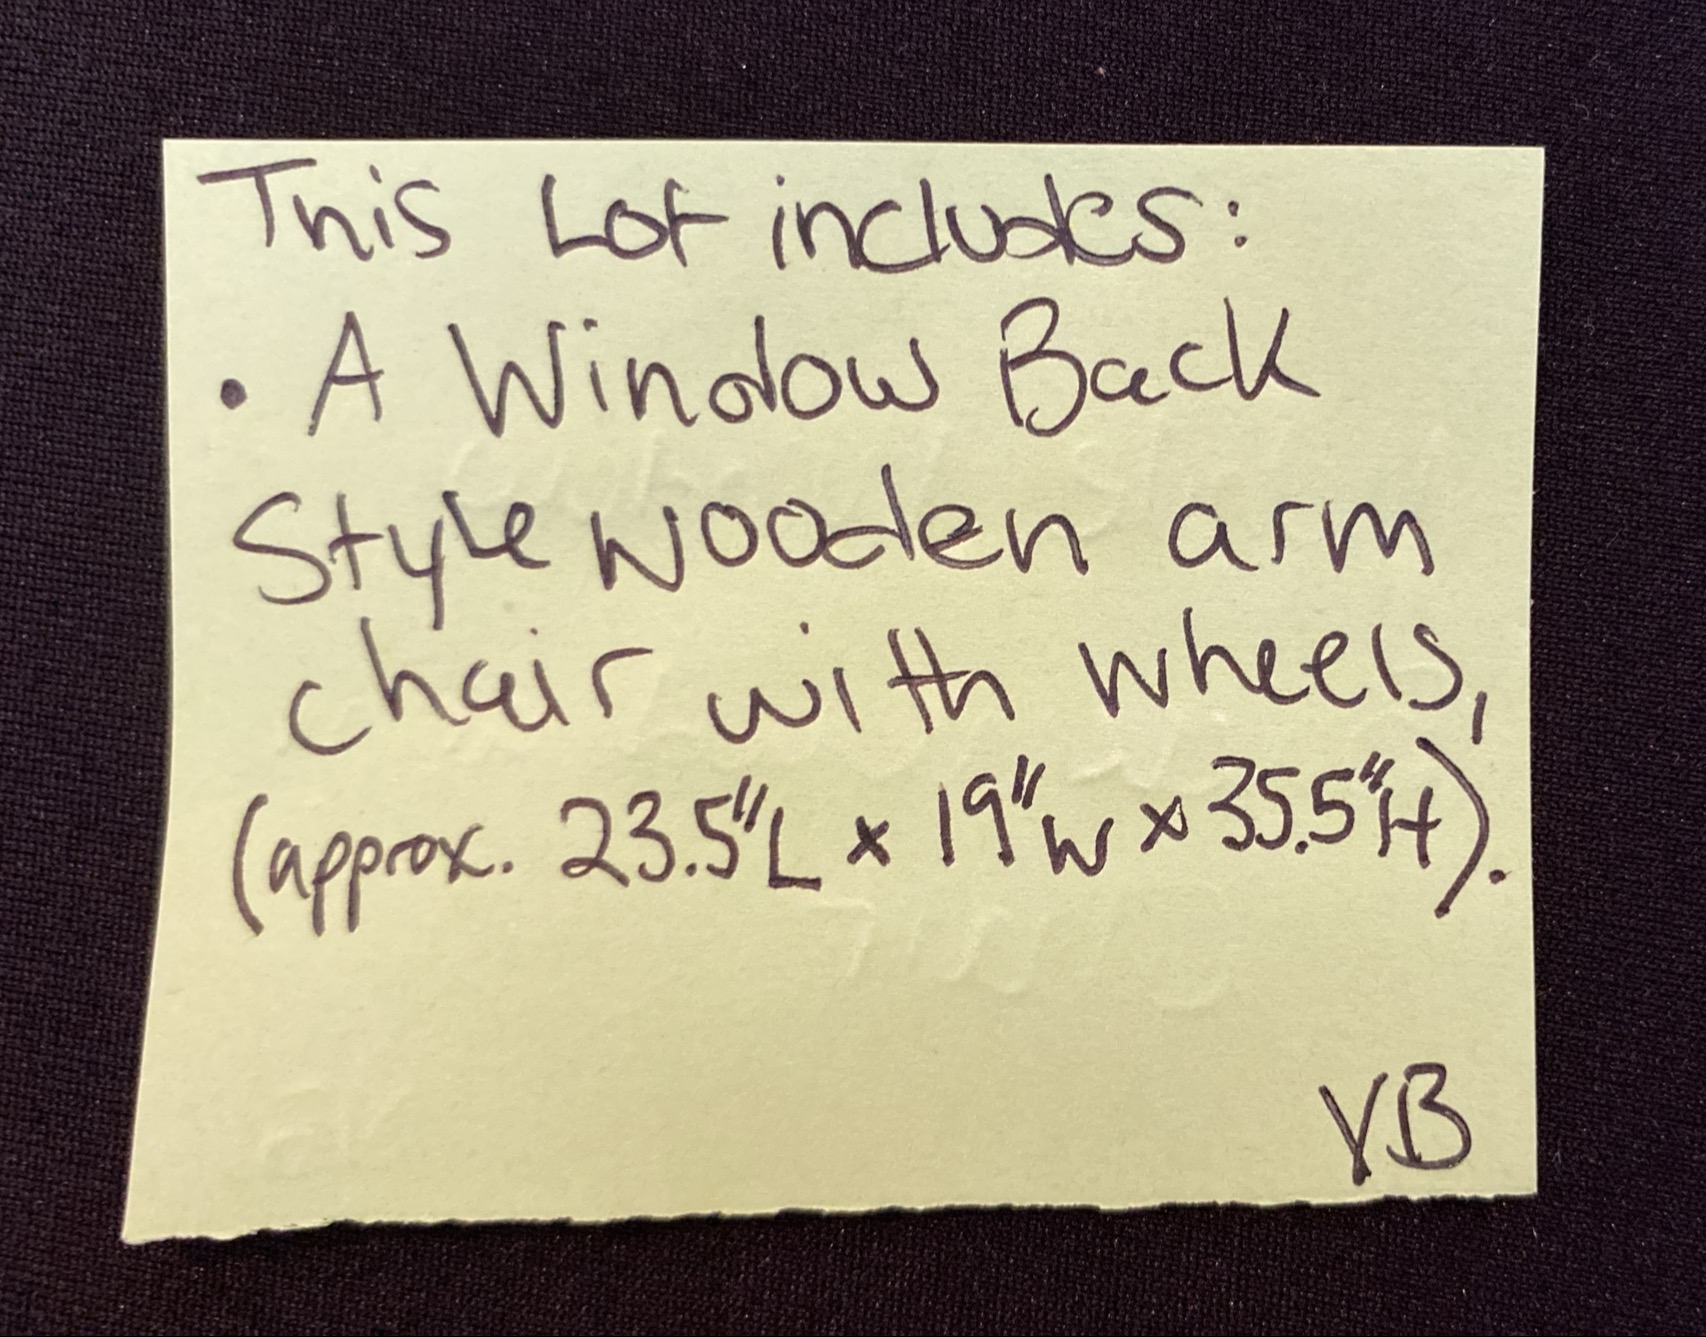 This Lot includes:
• A Window Back
Style wooden arm
chair with wheels,
(approx. 23.5"L x 19"W x 35.5"H).
VB